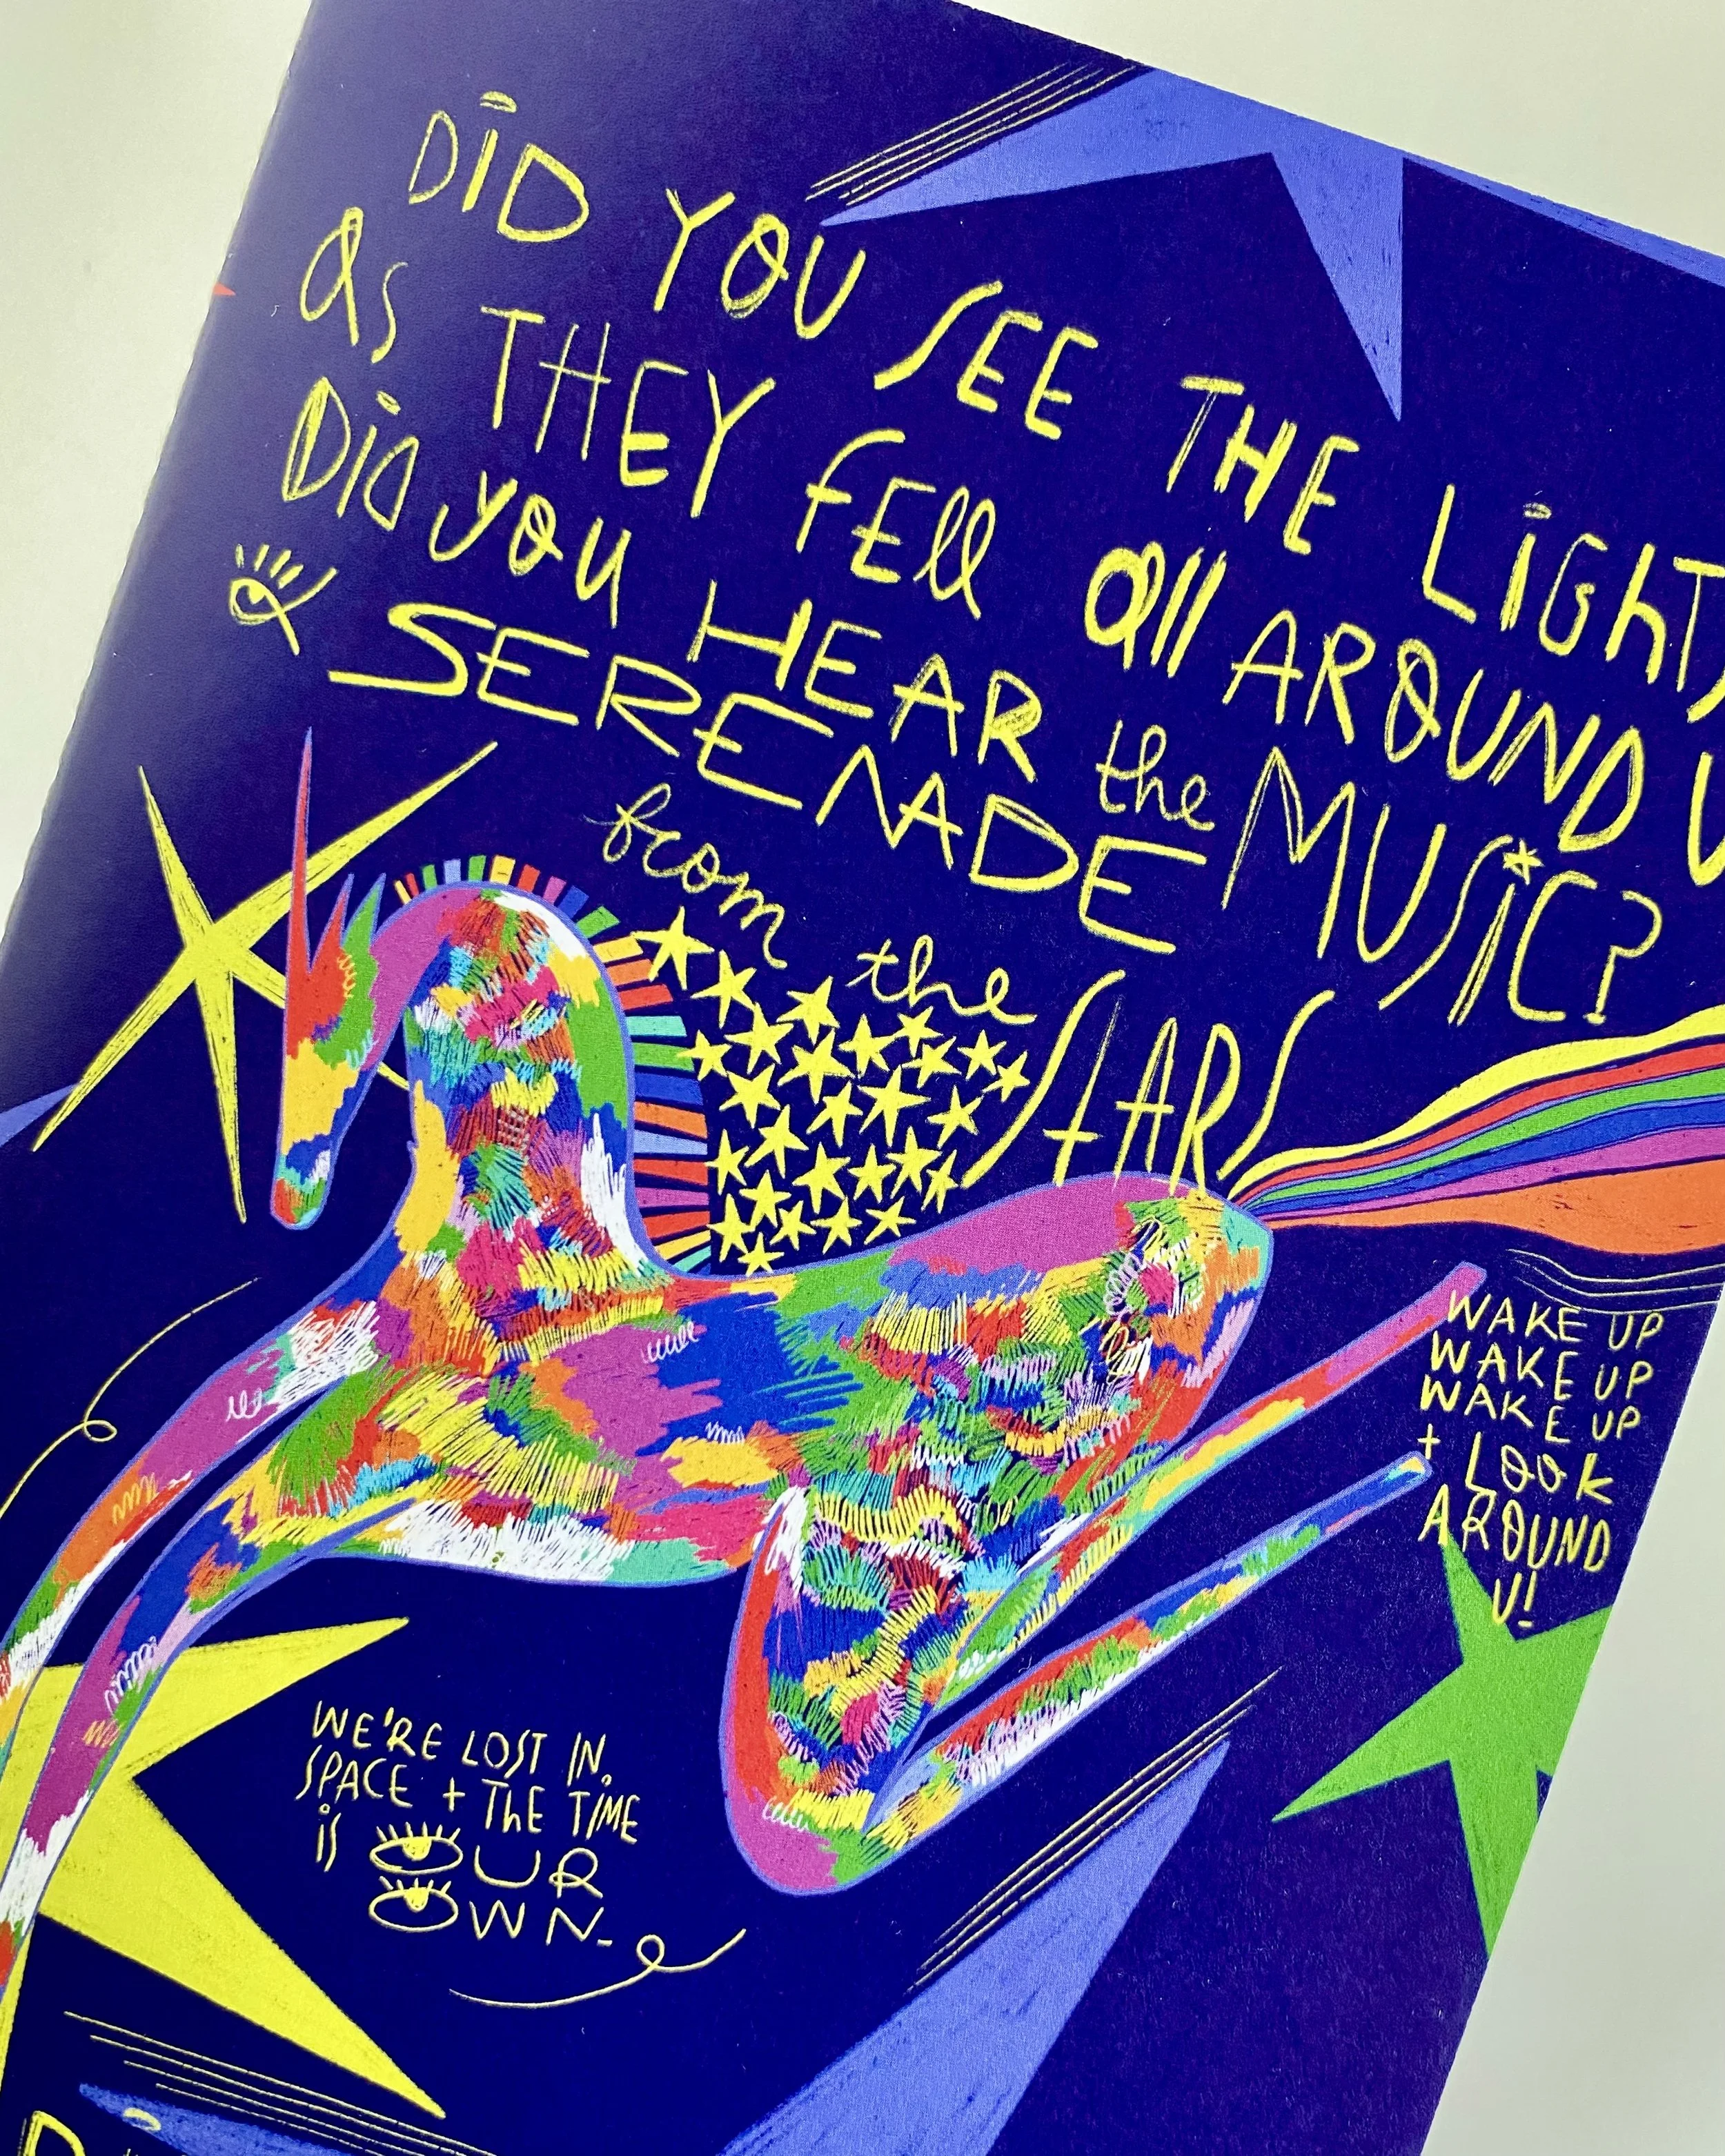 DiD YOU SEE THE LiGhTS
as THEY fEll all AROUND U
Did you HEAR the MUSiC?
SERENADE
from the STARS
WAKE UP
WAKE UP
WAKE UP
+ LOOK
AROUND
U!
WE'RE LOST IN
SPACE + ThE TiME
iS OUR
OWN-